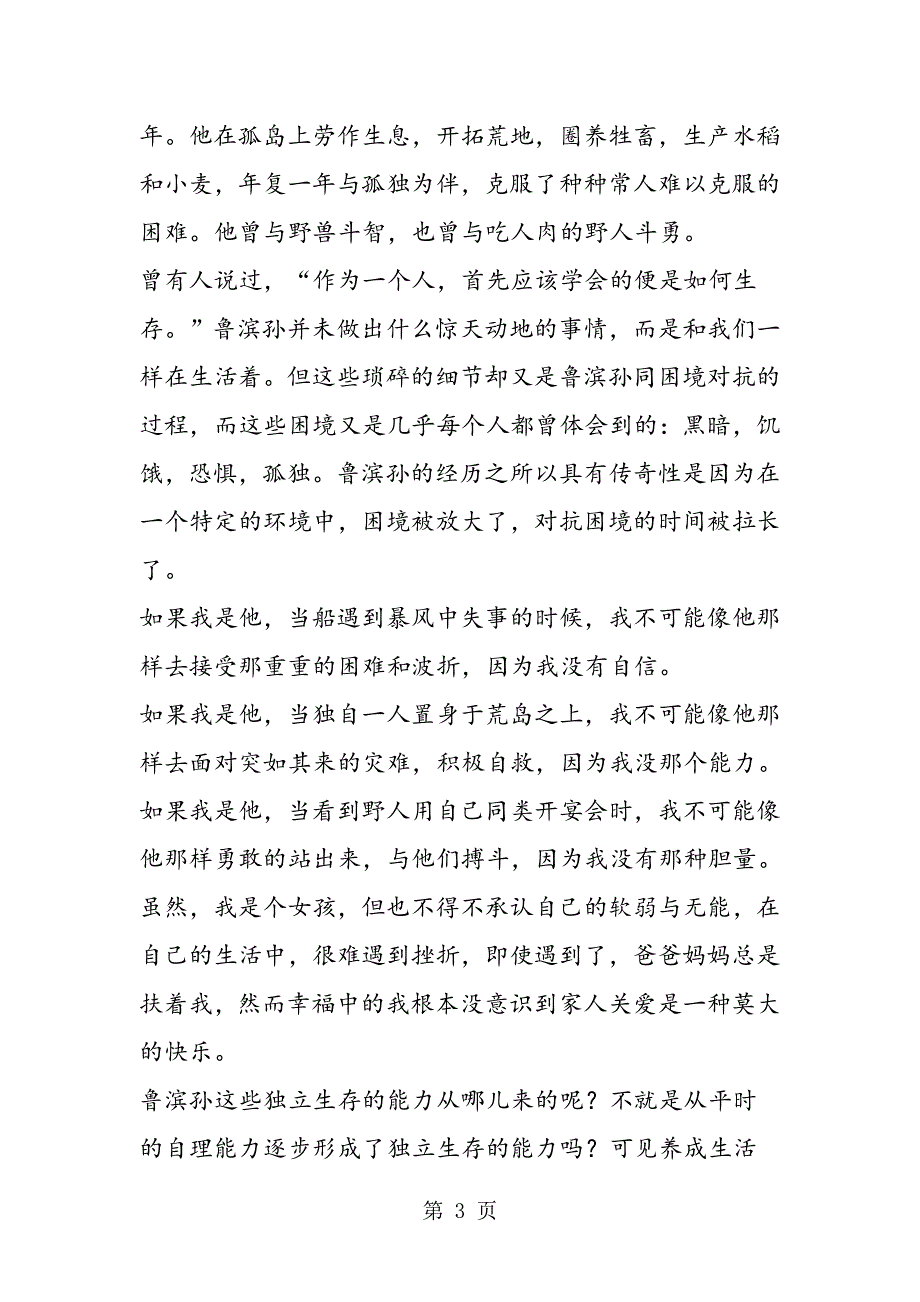 年。他在孤岛上劳作生息，开拓荒地，圈养牲畜，生产水稻
和小麦，年复一年与孤独为伴，克服了种种常人难以克服的
困难。他曾与野兽斗智，也曾与吃人肉的野人斗勇。
曾有人说过，“作为一个人，首先应该学会的便是如何生
存。”鲁滨孙并未做出什么惊天动地的事情，而是和我们一
样在生活着。但这些琐碎的细节却又是鲁滨孙同困境对抗的
过程，而这些困境又是几乎每个人都曾体会到的：黑暗，饥
饿，恐惧，孤独。鲁滨孙的经历之所以具有传奇性是因为在
一个特定的环境中，困境被放大了，对抗困境的时间被拉长
了。
如果我是他，当船遇到暴风中失事的时候，我不可能像他那
样去接受那重重的困难和波折，因为我没有自信。
如果我是他，当独自一人置身于荒岛之上，我不可能像他那
样去面对突如其来的灾难，积极自救，因为我没那个能力。
如果我是他，当看到野人用自己同类开宴会时，我不可能像
他那样勇敢的站出来，与他们搏斗，因为我没有那种胆量。
虽然，我是个女孩，但也不得不承认自己的软弱与无能，在
自己的生活中，很难遇到挫折，即使遇到了，爸爸妈妈总是
扶着我，然而幸福中的我根本没意识到家人关爱是一种莫大
的快乐。
鲁滨孙这些独立生存的能力从哪儿来的呢？不就是从平时
的自理能力逐步形成了独立生存的能力吗？可见养成生活
第 3 页